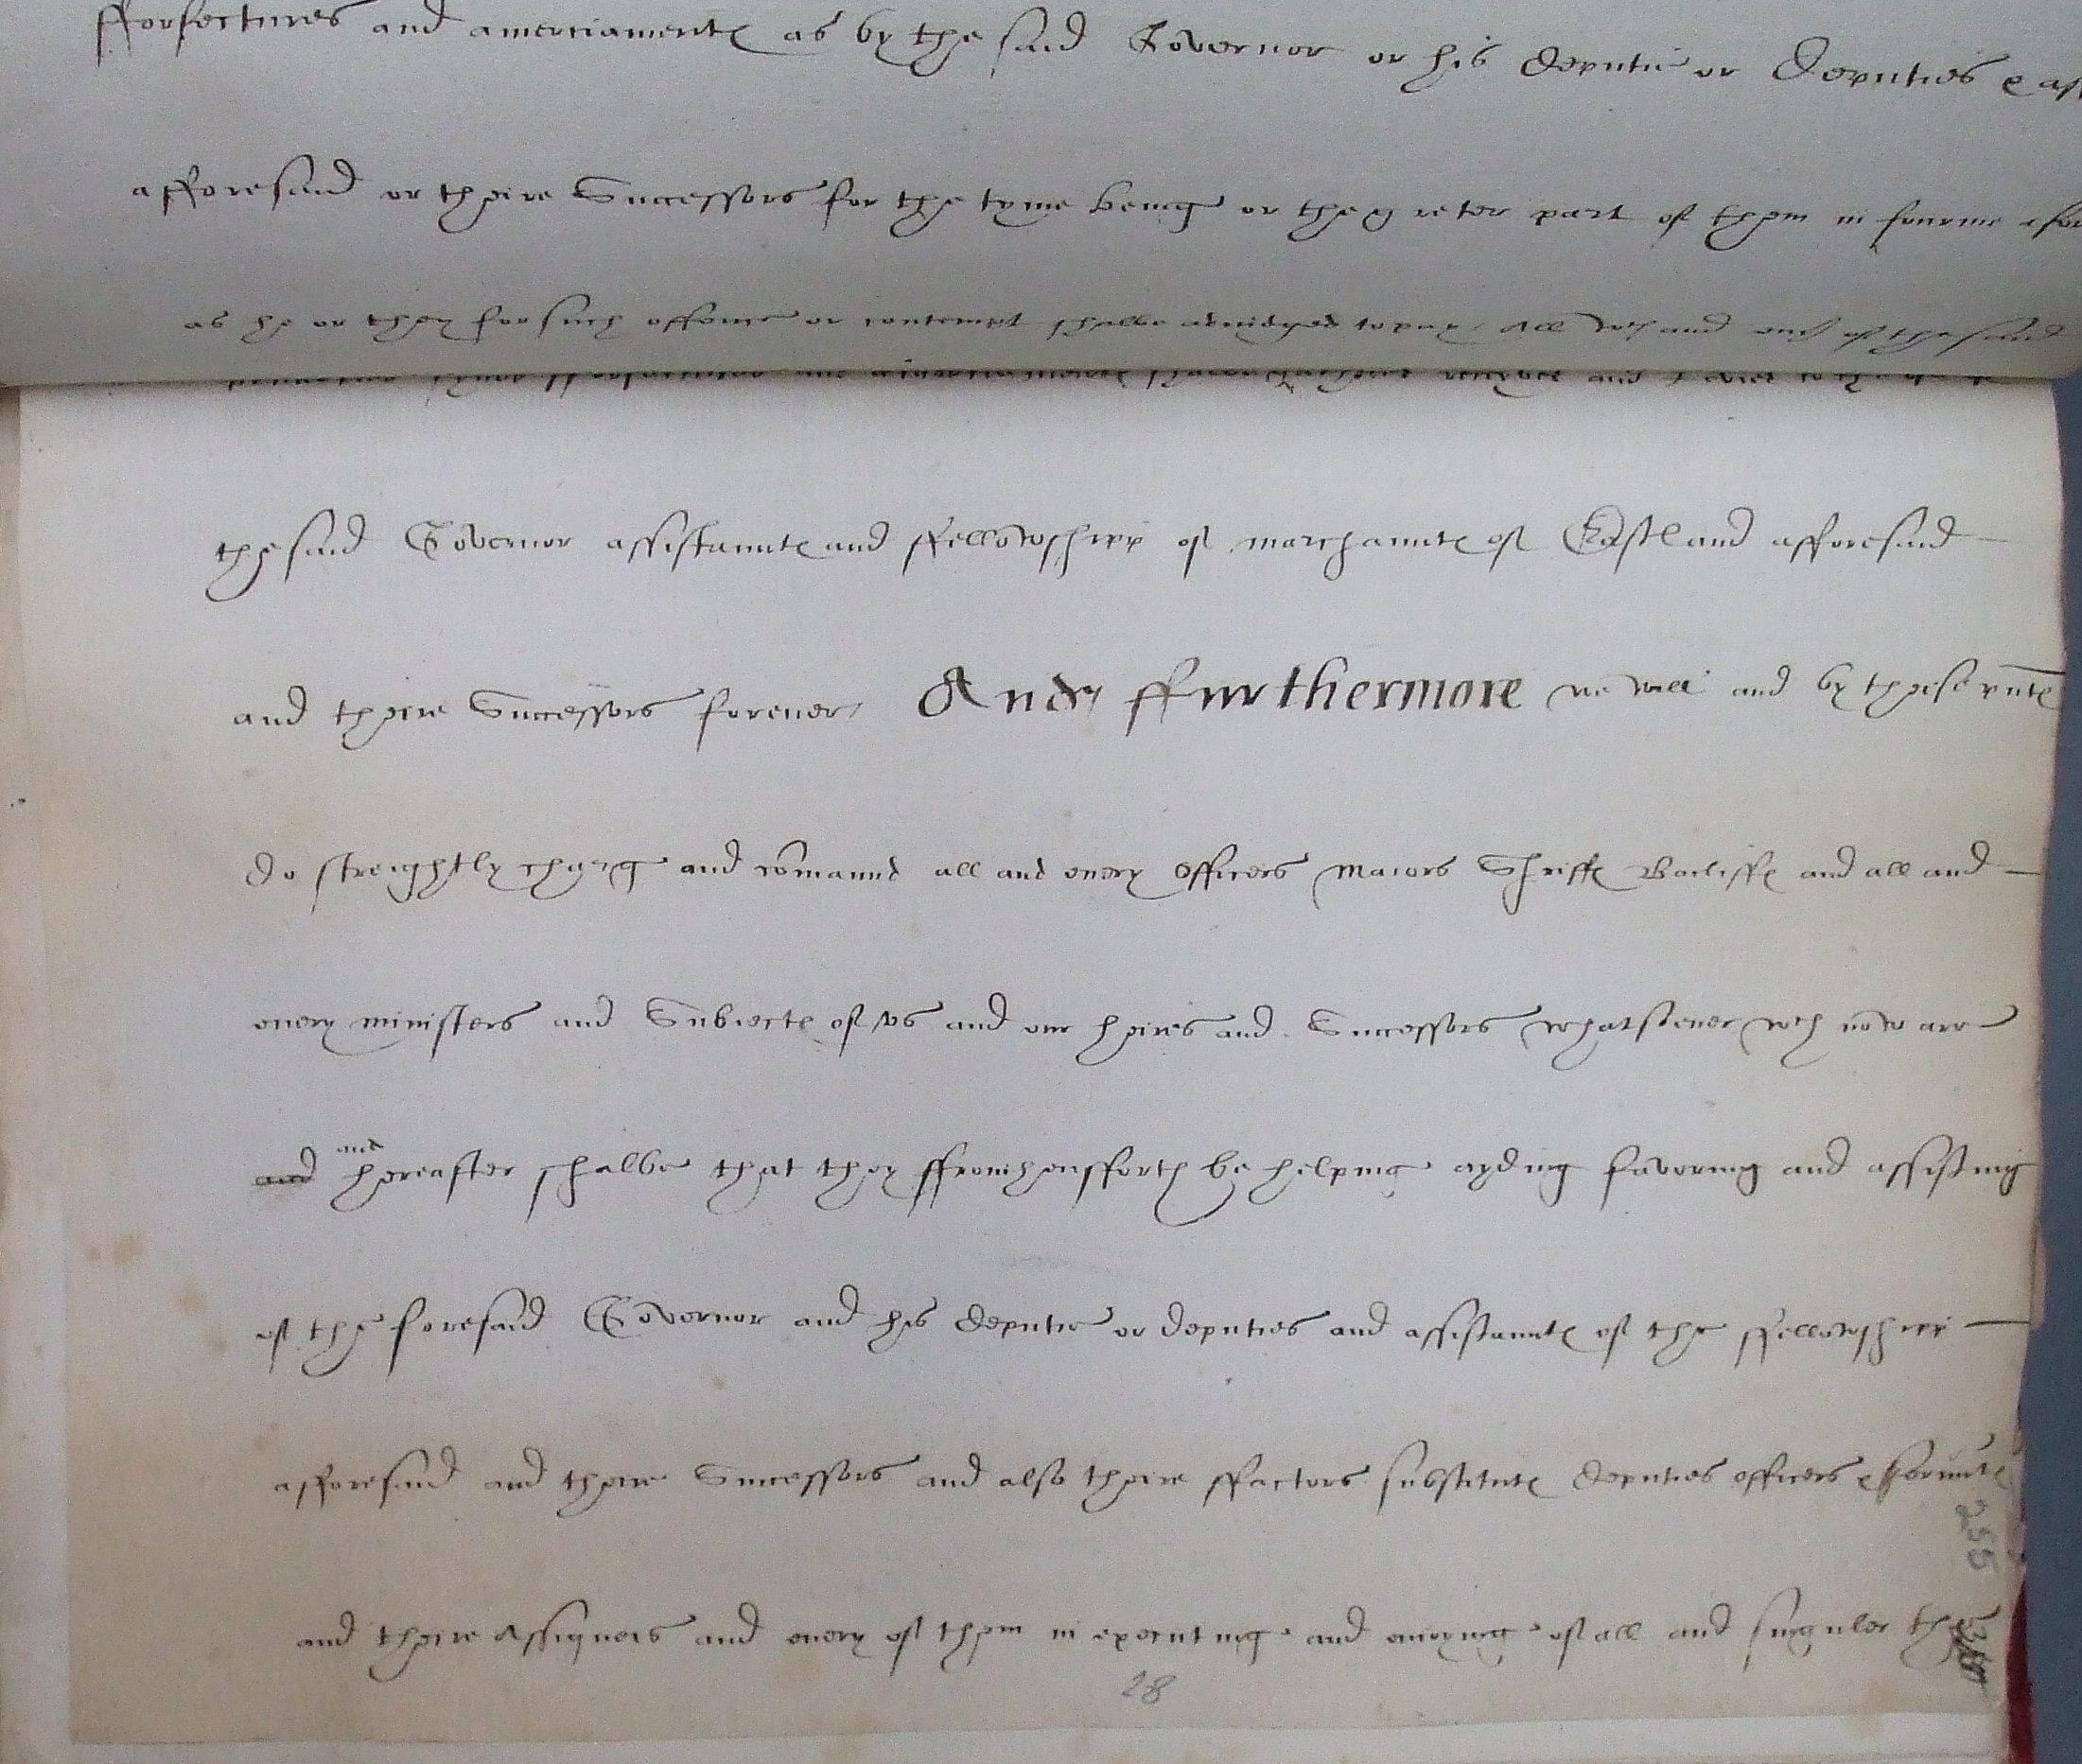 fforfectures and amerciamentes as by the said Governor or his deputie or deputies & ass
afforesaid or theire Successors for the tyme being or the greter part of them in fourme afor
as he or they for such offence or contempt shalbe adiudged to pay All wch and euery of the said
fforfectures and amerciamentes shalbe receyved and
the said Governor assistauntes and ffellowshipp of marchauntes of Eastland afforesaid
and theire Successors foreuer And ffurthermore we will and by theise pñtes
do streightly charg and cõmaund all and euery Officers Maiors Shriffes Bailiffes and all and
euery ministers and Subiectes of vs and our heires and Successors whatsoeuer wch now are
and and hereafter shalbe that they ffromhensfforth be helping ayding favoring and assisting
of the foresaid Governor and his deputie or deputies and assistauntes of the ffellowshipp
afforesaid and theire Successors and also theire ffactors substitutes deputies officers & seruantes
and theire Assigneis and euery of them in executing and enioying of all and singuler the
255
28